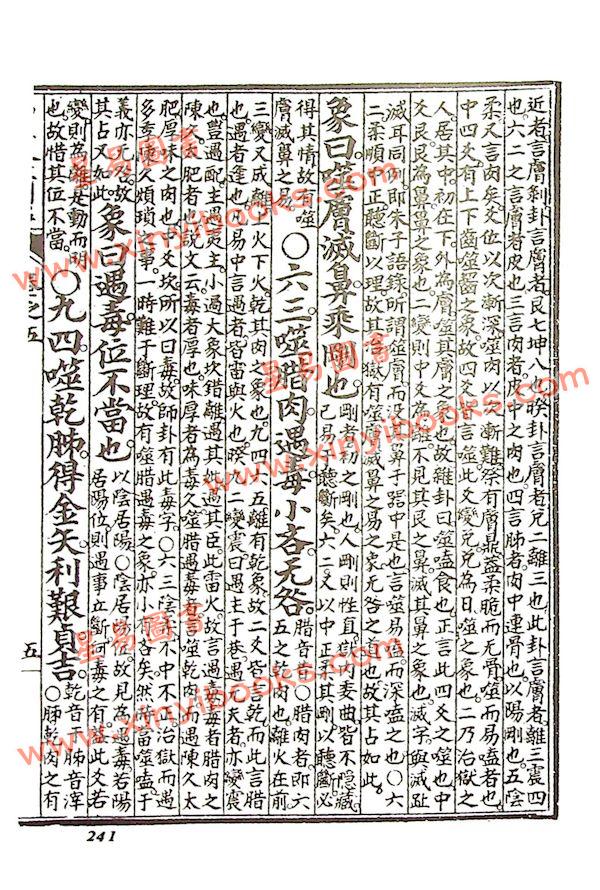 近者言膚剝卦言膚者艮七坤八也睽卦言膚者兌二離三也此卦言膚者離三震四
也六二之言膚者皮也三言肉者皮中之肉也四言胏者肉中連骨也以陽剛也五陰
柔又言肉矣爻位以次漸深噬肉以次漸難祭有膚鼎蓋柔脆而无骨噬而易嗑者也
中四爻有上下齒噬齧之象故四爻皆言噬此爻變兌兌為口噬之象也二乃治獄之
人居其中初在下外為膚噬其膚之象也故雜卦曰噬嗑食也正言此四爻之噬也中
爻艮艮為鼻鼻之象也二變則中爻為離不見其艮之鼻滅其鼻之象也滅字與滅趾
滅耳同例即朱子語錄所謂噬膚而没其鼻于器中是也言噬易嗑而深嗑之也〇六
二柔順中正聽斷以理故其治獄有噬膚滅鼻之易之象无咎之道也故其占如此
象曰噬膚滅鼻乘剛也剛者初之剛也人剛則性直獄內委曲皆不隱藏
已易于聽斷矣六二又以中正乘其剛以聽斷必
得其情故有噬
膚滅鼻之易
〇六三噬腊肉遇毒小吝无咎腊音昔〇腊肉者即六
五之乾肉也離火在前
三變又成離上火下火乾其肉之象也九四六五離有乾象故二爻皆言乾而此言腊
也遇者逢也凡易中言遇者皆雷與火也睽九二變震曰遇主于巷遇元夫者亦變震
也豐遇配主遇夷主小過大象坎錯離遇其妣遇其臣此雷火故言遇毒毒者腊肉之
陳久太肥者也說文云毒者厚也味厚者為毒久噬腊遇毒者言噬乾肉而遇陳久太
肥厚味之肉也中爻坎所以曰毒故師卦有此毒字〇六三陰柔不中不正治獄而遇
多年陳久煩瑣之事一時難于斷理故有噬腊遇毒之象亦小有吝矣然時當噬嗑于
義亦无咎故
其占又如此
象曰遇毒位不當也以陰居陽〇陰居陽位故見為遇毒若陽
居陽位則遇事立斷何毒之有蓋此爻若
變則為離是動而明
也故惜其位不當
〇九四噬乾胏得金矢利艱貞吉乾音干胏音滓
〇胏乾肉之有
五
241
星易圖書
www.xinyibooks.com
星易圖書
www.xinyibooks.com
星易圖書
www.xinyibooks.com